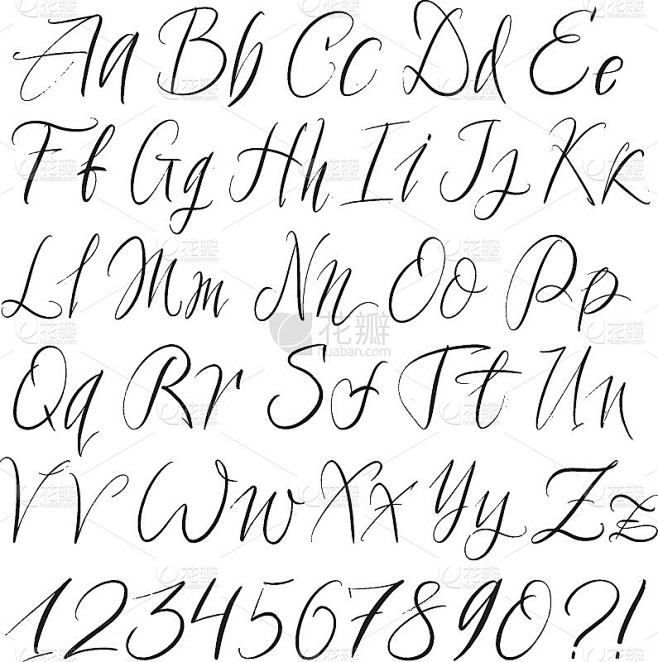 Aa Bb Cc Dd Ee
Ff Gg Hh Ii Jj Kk
Ll Mm Nn Oo Pp
Qq Rr Ss Tt Uu
Vv Ww Xx Yy Zz
1234567890?!
花瓣
huaban.com